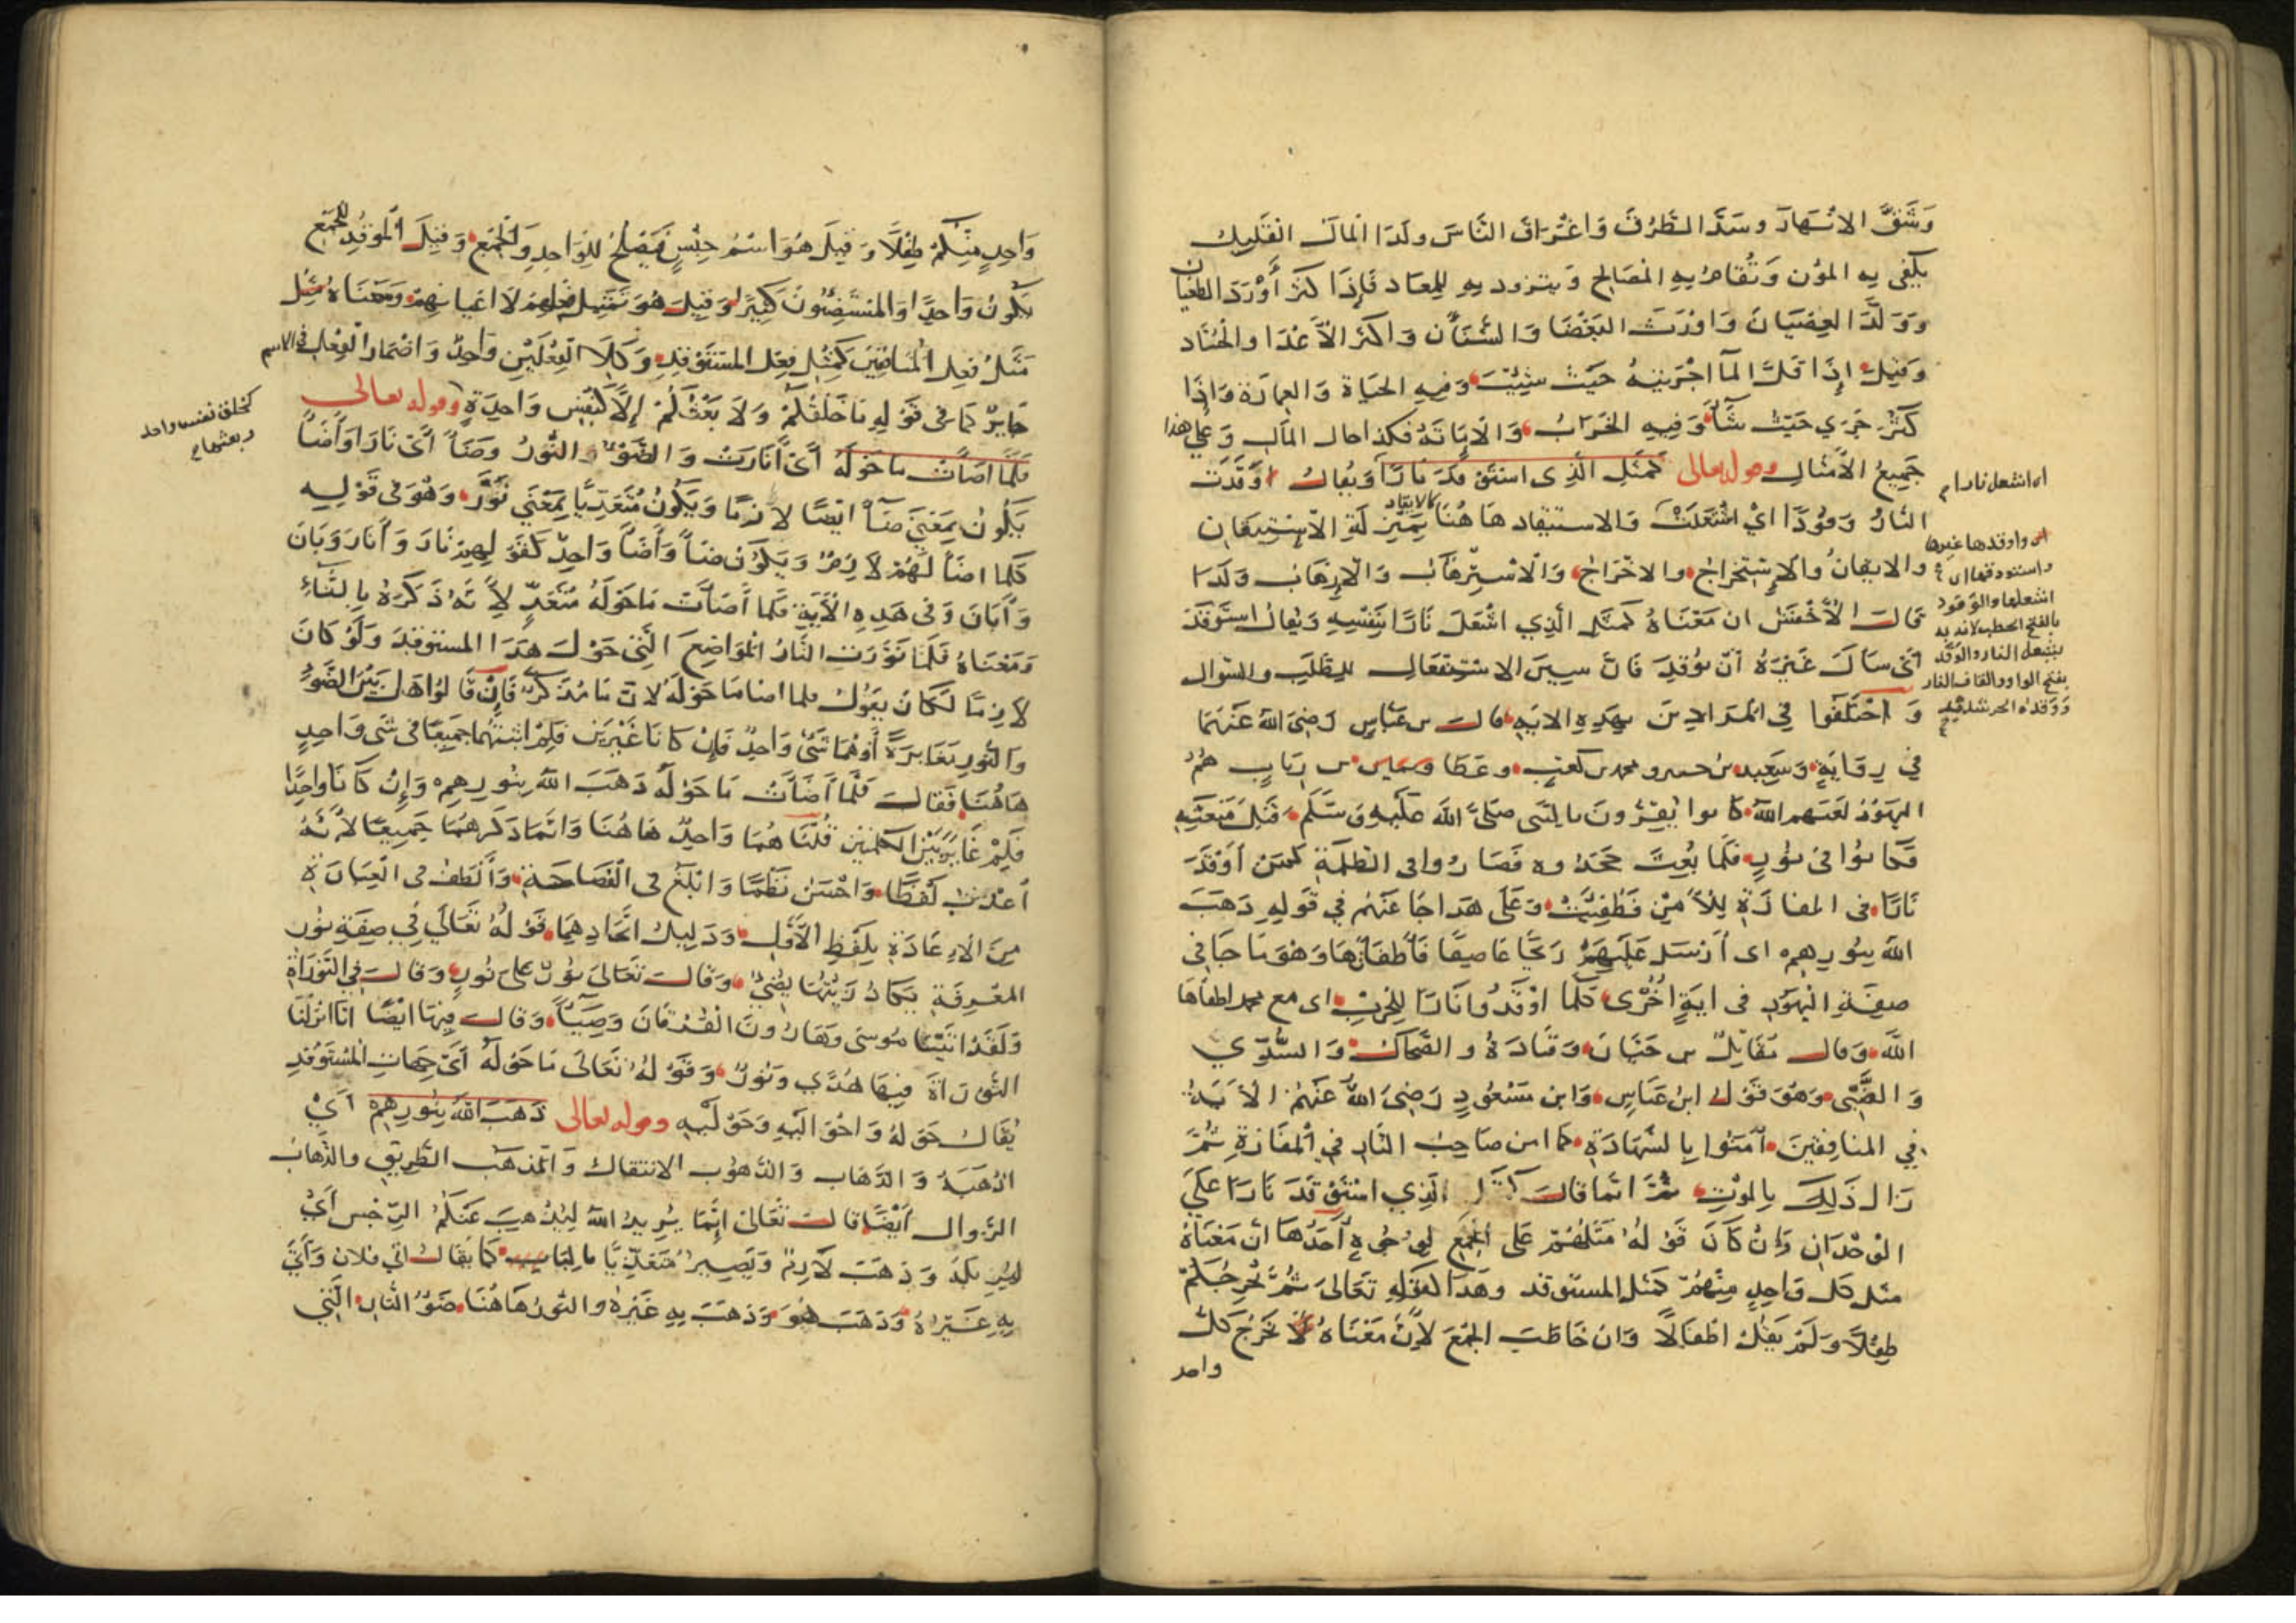 وَشَقَّ الانْهَارَ وسَدَّ الطُّرُقَ وَاغْرَاقَ النَّاسَ ولَذَا المَال القَلِيل
يكفى به المؤن وَتُقامُ بِهِ المَصَالح وَيتزود بهِ للِمعاد فَإِذَا كثر أَوْرَدَ الطغيان
وَوَلَّدَ العِصْيَانَ وَاوْرَثَ البَغْضَا وَالشَّنَأن وَاكثر الأَعْدَا والحُسَّاد
وَقيل إِذَا قَلَّ المآ اجْرَيتهُ حَيْث شِيْتَ وَفيهِ الحَيَاة وَالعِمَارَة وَاذَا
كَثُرَ جَرَي حَيْثُ شَآَ وَفِيهِ الخَرَابُ وَالابَاتَةُ فكذا حال المآل وَعلى هذا
جَمِيعُ الأَمثَال وقوله تعالى كَمَثَلِ الَّذِى اسْتَوْقَدَ نَارًا وَيُقالُ اوْقَدَت
النَارُ وَقُودًا اىْ اشْتَعَلَتْ وَالاستيقاد هَا هُنَا كالايقاد بمَنْزِلَةِ الاسْتِيقان
والايقان والاسْتِخراج والاخْرَاج وَالاسْتِرْهَاب وَالارْهَاب ولَذَا
قَالَ الأَخْفَشُ ان مَعْنَاهُ كمثَلِ الَّذِي اشْعَلَ نَارًا بنَفْسِهِ وَيُقالُ استَوْقَدَ
أَىْ سَألَ غَيْرَهُ أنْ يُوقِدَ فَانَّ سينَ الاسْتِفعَال للطَلَبِ والسّوال
وَاخْتَلفُوا فِي المُرَادِينَ بهَذِهِ الايَةِ قال بن عَبَّاسٍ رَضىَ اللهُ عَنْهُمَا
في رِوَايَةٍ وَسَعِيد بن جبير ومحمد بن كَعْبٍ وعَطَا ويمان بن رِيَابٍ هُمُ
اليَهُوْدُ لَعَنَهم الله كَانوا يُقِرُّونَ بالنَّبى صَلَّى اللهَ عَلَيْهِ وَسَلَّم قَبْلَ مَبْعَثِهِ
فَكَانُوا فى نُورٍ فلَمَا بُعِثَ جَحَدُوه فَصَارُوا فى الظلمَةِ كمَن أوْقَدَ
نَارًا فى المفَازَةِ لِلأَمْنِ فَطُفِيَتْ وَعَلَى هَذا جَاءَ عَنْهُم في قَولِهِ ذَهَبَ
اللهَ بنُورِهِم اى أَرْسَلَ عَلَيْهِمْ رِيحًا عَاصِفًا فَأطفَأهَا وَهْوَ مَا جَا في
صِفَةِ اليَهُودِ فى ايَةٍ اخْرَى كلَّمَا اوْقَدُوا نَارًا لِلحَرْبِ اى مَع محمد اطفأهَا
اللّهُ وَقال مُقَاتِلُ بن حَيَّانَ وَقَتَادَةُ والضَّحَاكُ وَالسُّدِّي
وَالضَّبِّى وَهْوَ قَوْلُ ابنِ عَبَاسٍ وَابن مَسْعُودٍ رَضِىَ اللهُ عَنْهُمْ الأيَةُ
في المنافقينَ آمَنُوا بِالشَهَادَةِ كما امِنَ صَاحِبُ النَّارِ في المَفَازَةِ ثُمَّ
زَال ذَلِكَ بالمَوْتِ ثُمَّ انَّمَا قَالَ كَمَثَلِ الَّذِي اسْتَوْقَدَ نَارًا عَلَى
الوِحْدَانِ وَإنْ كَانَ قَوْلُهُ مَثَلُهُمْ عَلَى الجَمْعِ لوُجُوهٍ أَحَدُهَا أنّ مَعْنَاهُ
مثَل كل وَاحِدٍ مِنْهُمْ كَمَثَل المستَوقد وهَذَا كقَوْلِهِ تعَالَى ثُمَّ يُخْرِجُكُمْ
طِفْلًا وَلَمْ يَقُل اطْفَالًا وَان خَاطَبَ الجَمْعَ لأَنَّ مَعْنَاهُ يُخْرِجُ كلَّ
واحد
اى اشعل نارا
اى واوقدها غيرها
واستوقدها اى
اشعلها والوَقود
بالفتح الحطب لانه به
يشعل النار والوَقَد
بفتح الواو والقاف النار
وَوَقدة الحر شدته
وَاحِدٍ مِنْكُمْ طِفْلًا وَقيلَ هُوَ اسْمُ جِنْسٍ فَيَصْلحُ لِلوَاحِدِ وَالجَمْعِ وَقِيلَ المُوقِدُ للجَمْعِ
يَكُونُ وَاحِدًا وَالمُسْتَضِيئُونَ كَثِيرًا وَقيلَ هُوَ تَمْثِيل فعلهم لَا اعْيَانهم وَمَعْنَاهُ مَثَلُ
مَثَلُ فِعلِ المُنَافقينَ كَمِثْلِ فِعْلِ المسْتَوْقِدِ وَكِلَا الفِعْلَيْنِ وَاحِدٌ وَاضْمَارُ الفِعْل في الاسم
جَايزٌ كمَا فى قَوْلِهِ مَا خَلْقُكُمْ وَلَا بَعْثُكُمْ إِلَّا كَنَفْسٍ وَاحِدَةٍ وقوله تعالى
فَلَمَّا اضَآَتْ مَا حَوْلَهُ أَىْ أَنَارَتْ وَالضَّوْءُ وَالنُّورُ وضَآءَ أَىْ نَارَ وَأَضَآءَ
يَكُونُ بمَعْنَى ضَآءَ ايضًا لازِمًا وَيَكُونُ مُتَعَدِّيًا بِمَعْنَى نَوَّرَ وَهُوَ فى قَوْلِهِ
كلَّمَا اضَآءَ لَهُمْ لازِمٌ وَيَكُون ضَآءَ وَأَضَآءَ وَاحِدٌ كقَوْلِهِم نَارَ وَأَنَارَ وَبَانَ
وَأبَانَ وَفى هَذِهِ الأَيَةِ فَلَمَّا أَضَآَتْ مَا حَوْلَهُ مُتَعَدٍّ لأَنَّهُ ذَكَرَهُ بِالتَّاءِ
وَمَعْنَاهُ فَلَمّا نَوَّرَت النَّارُ المَوَاضِعَ الَّتِى حَوْلَ هَذَا المستوقد وَلَوْ كَانَ
لازِمًا لَكَانَ يَقُولُ فلما اضا مَا حَوْلَهُ لانَّ مَا مُذَكَّرٌ فَإنْ قَالُوا هَل بَيْنَ الضَّوْءِ
وَالنُّورِ مُغَايَرَةٌ أَوْ هُمَا شَىْءٌ وَاحِدٌ فَإِنْ كَانَا غَيْرَيْنِ فَلِمَ اثبتَهُمَا جَمِيعًا فى شَىْءٍ وَاحِدٍ
هَاهُنَا فَقَالَ فَلَمَّا أَضَآَتْ مَا حَوْلَهُ ذَهَبَ اللهُ بِنُورِهِم وَإِنْ كَانَا وَاحِدًا
فَلِمَ غَايَرَ بَيْنَ الكلمتَيْن قُلْنَا هُمَا وَاحِدٌ هَاهُنَا وَانَّمَا ذَكَرَهُمَا جَمِيعًا لأَنَّهُ
أَعْذَبُ لَفْظًا وَاحْسَنُ نَظْمًا وَابْلَغُ فى الفَصَاحَةِ وَأَلْطَفُ فى العِبَارَةِ
مِنَ الاِعَادَةِ بِلَفْظِ الأَوَّلِ وَدَلِيلُ اتِّحَادِهِمَا قَوْلُهُ تَعَالَى فِي صِفَةِ نُورِ
المَعْرِفَةِ يَكَادُ زَيْتُهَا يُضِيءُ وَقَالَ تَعَالَى نُورٌ عَلَى نُورٍ وَقَالَ فِي التَّوْرَاةِ
وَلَقَدْ اتَيْنَا مُوسَى وَهَارُونَ الفُرْقَانَ وَضِيَآءً وَقَالَ فِيهَا ايْضًا انَّا انْزَلْنَا
التَّوْرَاةَ فِيهَا هُدًي وَنُورٌ وَقَوْلُهُ تَعَالَى مَا حَوْلَهُ أَىْ جِهَاتِ المُسْتَوْقِدِ
يُقَالُ حَوْلَهُ وَاحْوَالَيْهِ وَحَوْلَيْهِ وقوله تعالى ذَهَبَ اللهُ بِنُورِهِم اىْ
اذْهَبَهُ وَالذَّهَاب وَالذُّهُوب الانتقال وَالمَذهَب الطَّرِيق والذَّهَابُ
الزَّوال أَيْضًا قَالَ تَعَالَى إِنَّمَا يُرِيدُ اللهُ لِيُذْهِبَ عَنكمُ الرِّجْسَ أَىْ
لِيُزِيلَهُ وَذَهَبَ لَازِمٌ وَيَصِيرُ مُتَعَدِّيًا بالبَاءِ كَمَا يُقَالُ اتى فلان وَأَتَى
بِهِ غَيْرُهُ وَذَهَبَ هُوَ وَذَهَبَ بِهِ غَيْرهُ والنّورُ هَاهُنَا ضَوْءُ النَّارِ الَّتِي
كخلق نفس واحد
وبعثها